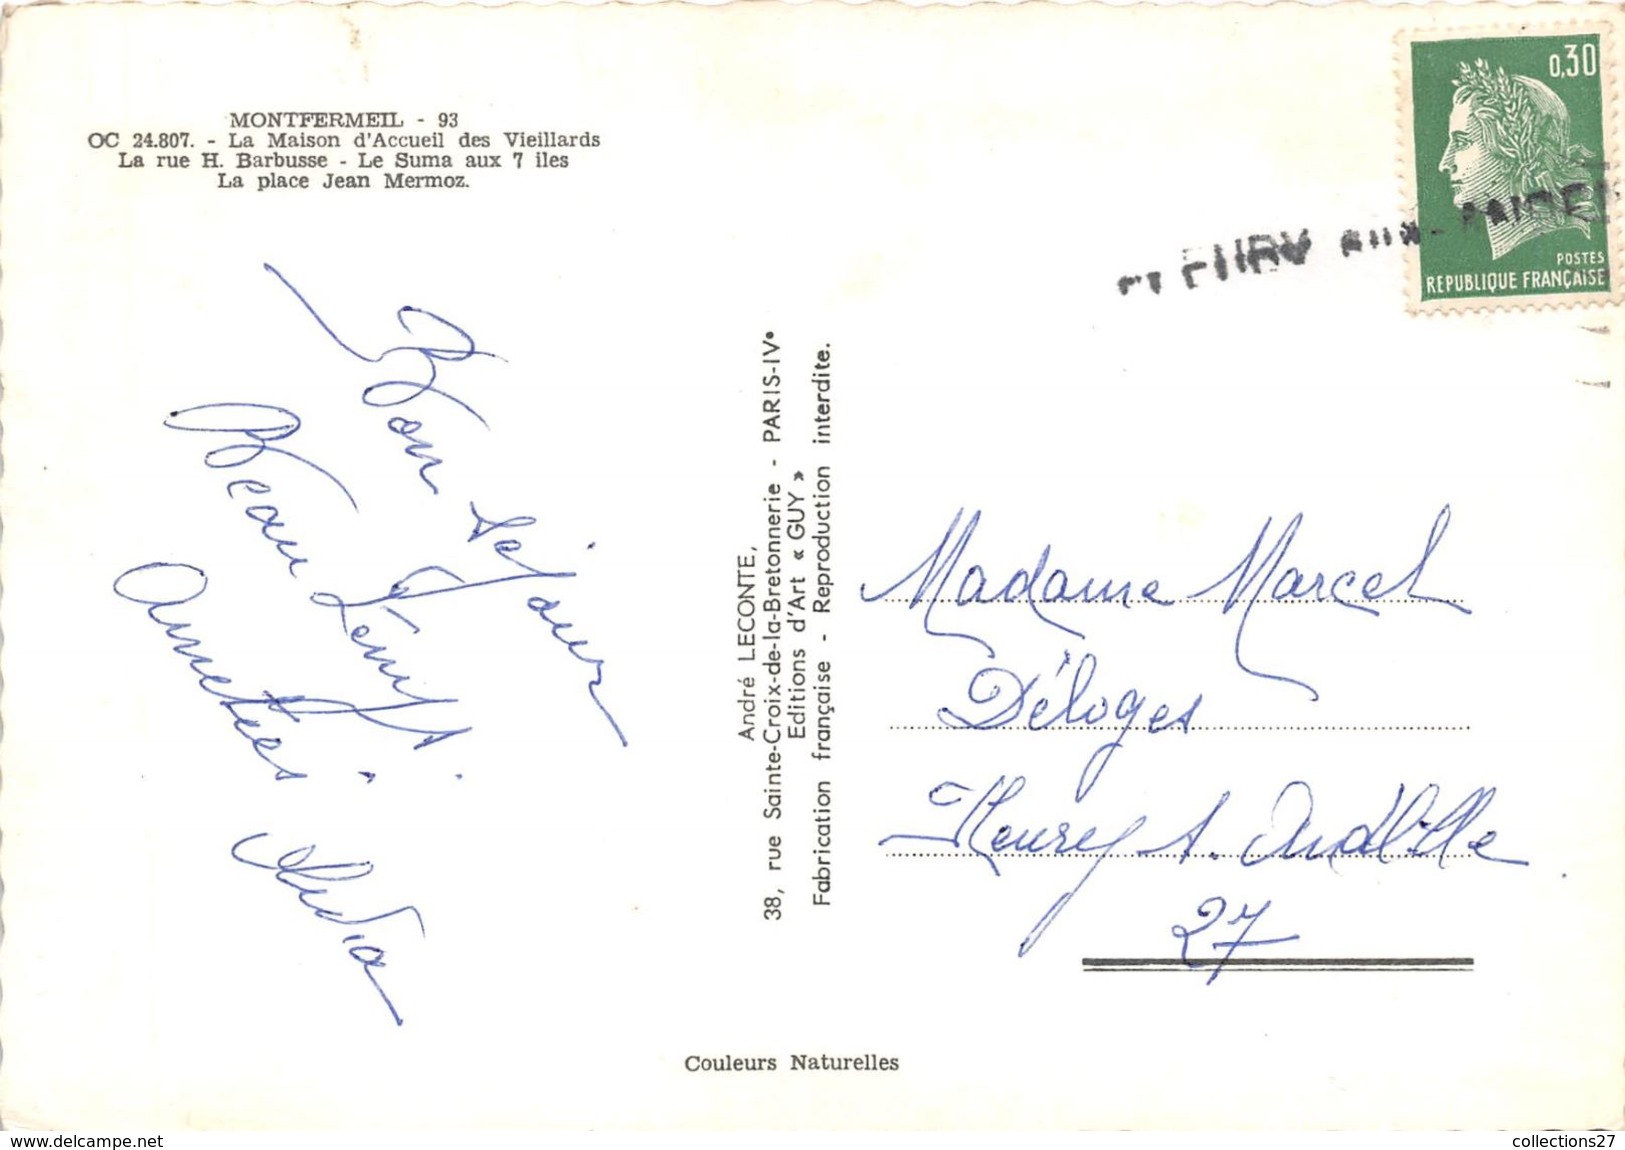 MONTFERMEIL - 93
OC 24.807. - La Maison d'Accueil des Vieillards
La rue H. Barbusse - Le Suma aux 7 iles
La place Jean Mermoz.
Bon séjour
Beau temps.
Amitiés.
André LECONTE,
38, rue Sainte-Croix-de-la-Bretonnerie - PARIS-IVe
Editions d'Art « GUY »
Fabrication française - Reproduction interdite.
0,30
POSTES
REPUBLIQUE FRANÇAISE
FLEURY
Madame Marcel
Déloges
Fleury s. Andelle
27
Couleurs Naturelles
collections27
www.delcampe.net